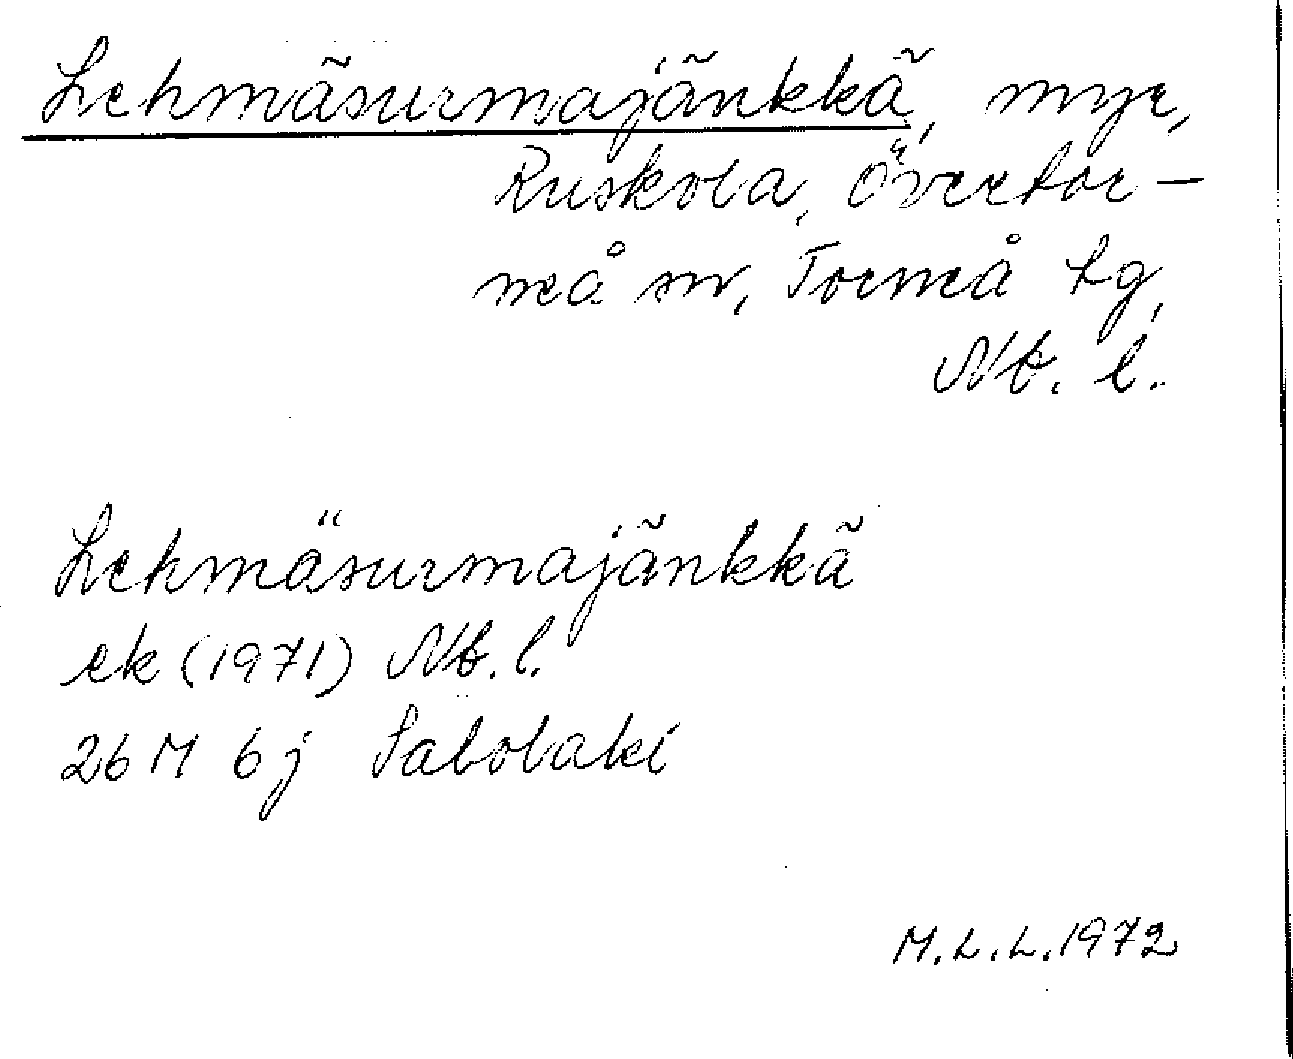 Lehmäsurmajänkkä, myr,
Ruskola, Övertor-
neå sn, Torneå tg,
Nb. l.
Lehmäsurmajänkkä
ek (1971) Nb. l.
26 M 6 j
M.L.L. 1972